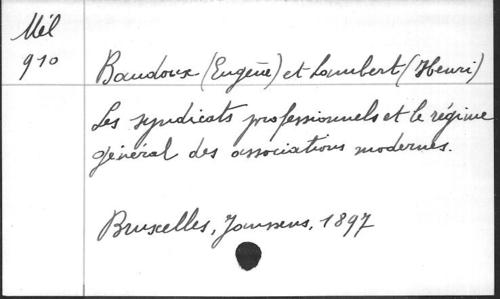 Mél
910
Baudoux (Eugène) et Lambert (Henri)
Les syndicats professionnels et le régime
général des associations modernes.
Bruxelles, Janssens, 1897